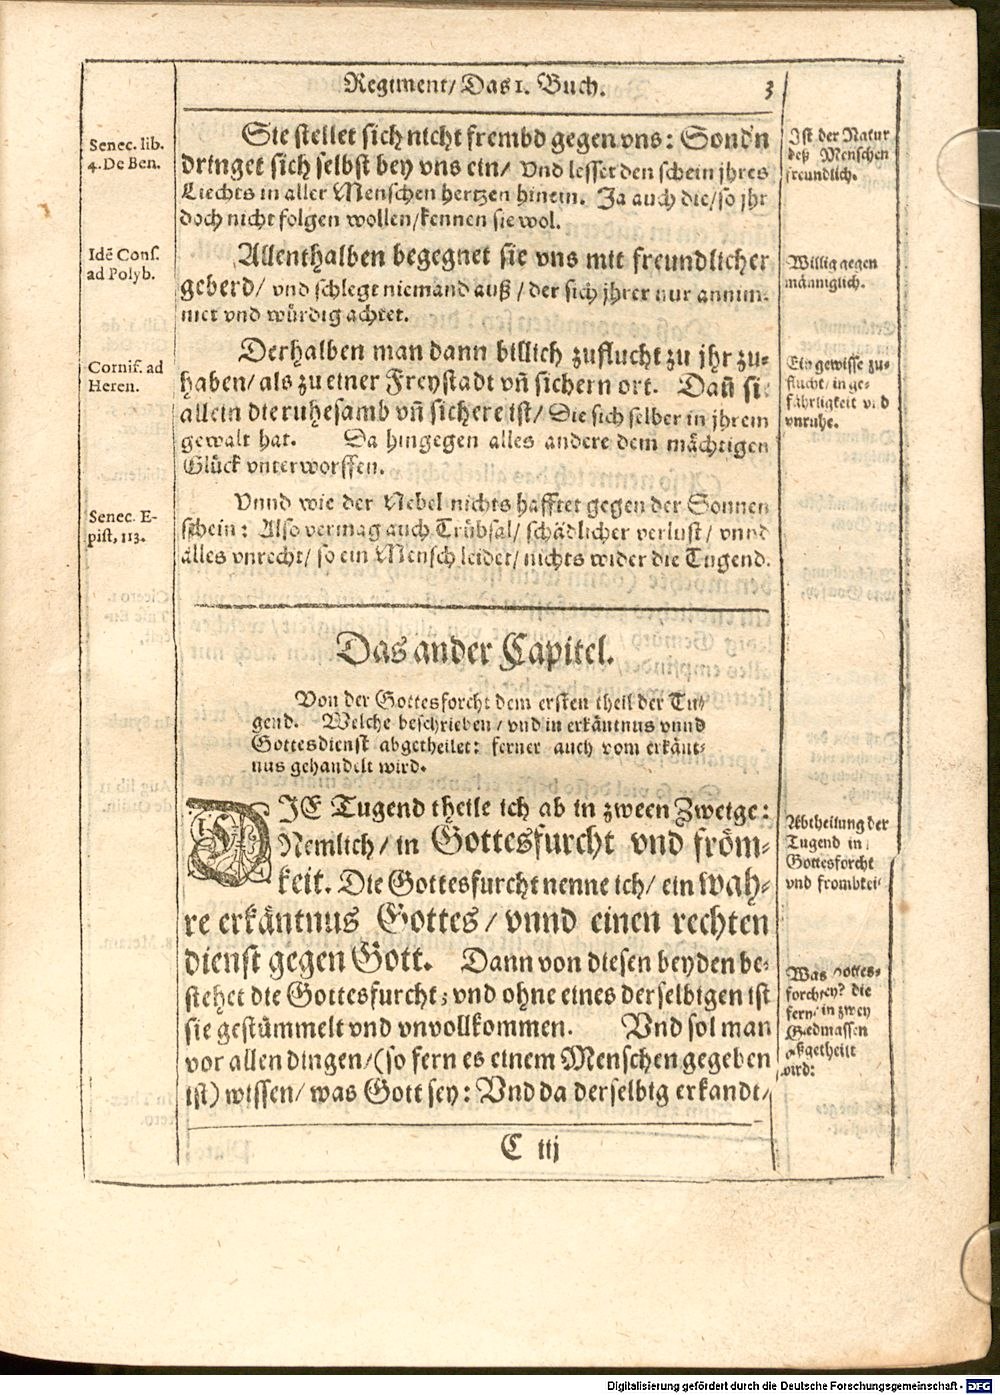 Regiment/ Das 1. Buch. 3
Senec. lib.
4. De Ben.
Sie stellet sich nicht frembd gegen vns: Sond'n
dringet sich selbst bey vns ein/ Vnd lesset den schein jhres
Liechts in aller Menschen hertzen hinein. Ja auch die/ so jhr
doch nicht folgen wollen/ kennen sie wol.
Ist der Natur
deß Menschen
freundlich.
Idẽ Cons.
ad Polyb.
Allenthalben begegnet sie vns mit freundlicher
geberd/ vnd schlegt niemand auß/ der sich jhrer nur annim-
met vnd würdig achtet.
Willig gegen
männiglich.
Cornif. ad
Heren.
Derhalben man dann billich zuflucht zu jhr zu-
haben/ als zu einer Freystadt vñ sichern ort. Dañ sie
allein die ruhesamb vñ sichere ist/ Die sich selber in jhrem
gewalt hat. Da hingegen alles andere dem mächtigen
Glück vnterworffen.
Ein gewisse zu-
flucht/ in ge-
fährligkeit vnd
vnruhe.
Senec. E-
pist, 113.
Vnnd wie der Nebel nichts hafftet gegen der Sonnen
schein: Also vermag auch Trübsal/ schädlicher verlust/ vnnd
alles vnrecht/ so ein Mensch leidet/ nichts wider die Tugend.
Das ander Capitel.
Von der Gottesforcht dem ersten theil der Tu-
gend. Welche beschrieben/ vnd in erkäntnus vnnd
Gottesdienst abgetheilet: ferner auch vom erkänt-
nus gehandelt wird.
DIE Tugend theile ich ab in zween Zweige:
Nemlich/ in Gottesfurcht vnd fröm-
keit. Die Gottesfurcht nenne ich/ ein wah-
re erkäntnus Gottes/ vnnd einen rechten
dienst gegen Gott. Dann von diesen beyden be-
stehet die Gottesfurcht; vnd ohne eines derselbigen ist
sie gestümmelt vnd vnvollkommen. Vnd sol man
vor allen dingen/ (so fern es einem Menschen gegeben
ist) wissen/ was Gott sey: Vnd da derselbig erkandt/
Abtheilung der
Tugend in
Gottesforcht
vnd frombkei
Was gottes-
forcht sey? die
fern in zwey
Gliedmassen
außgetheilt
wird:
C iij
Digitalisierung gefördert durch die Deutsche Forschungsgemeinschaft - DFG